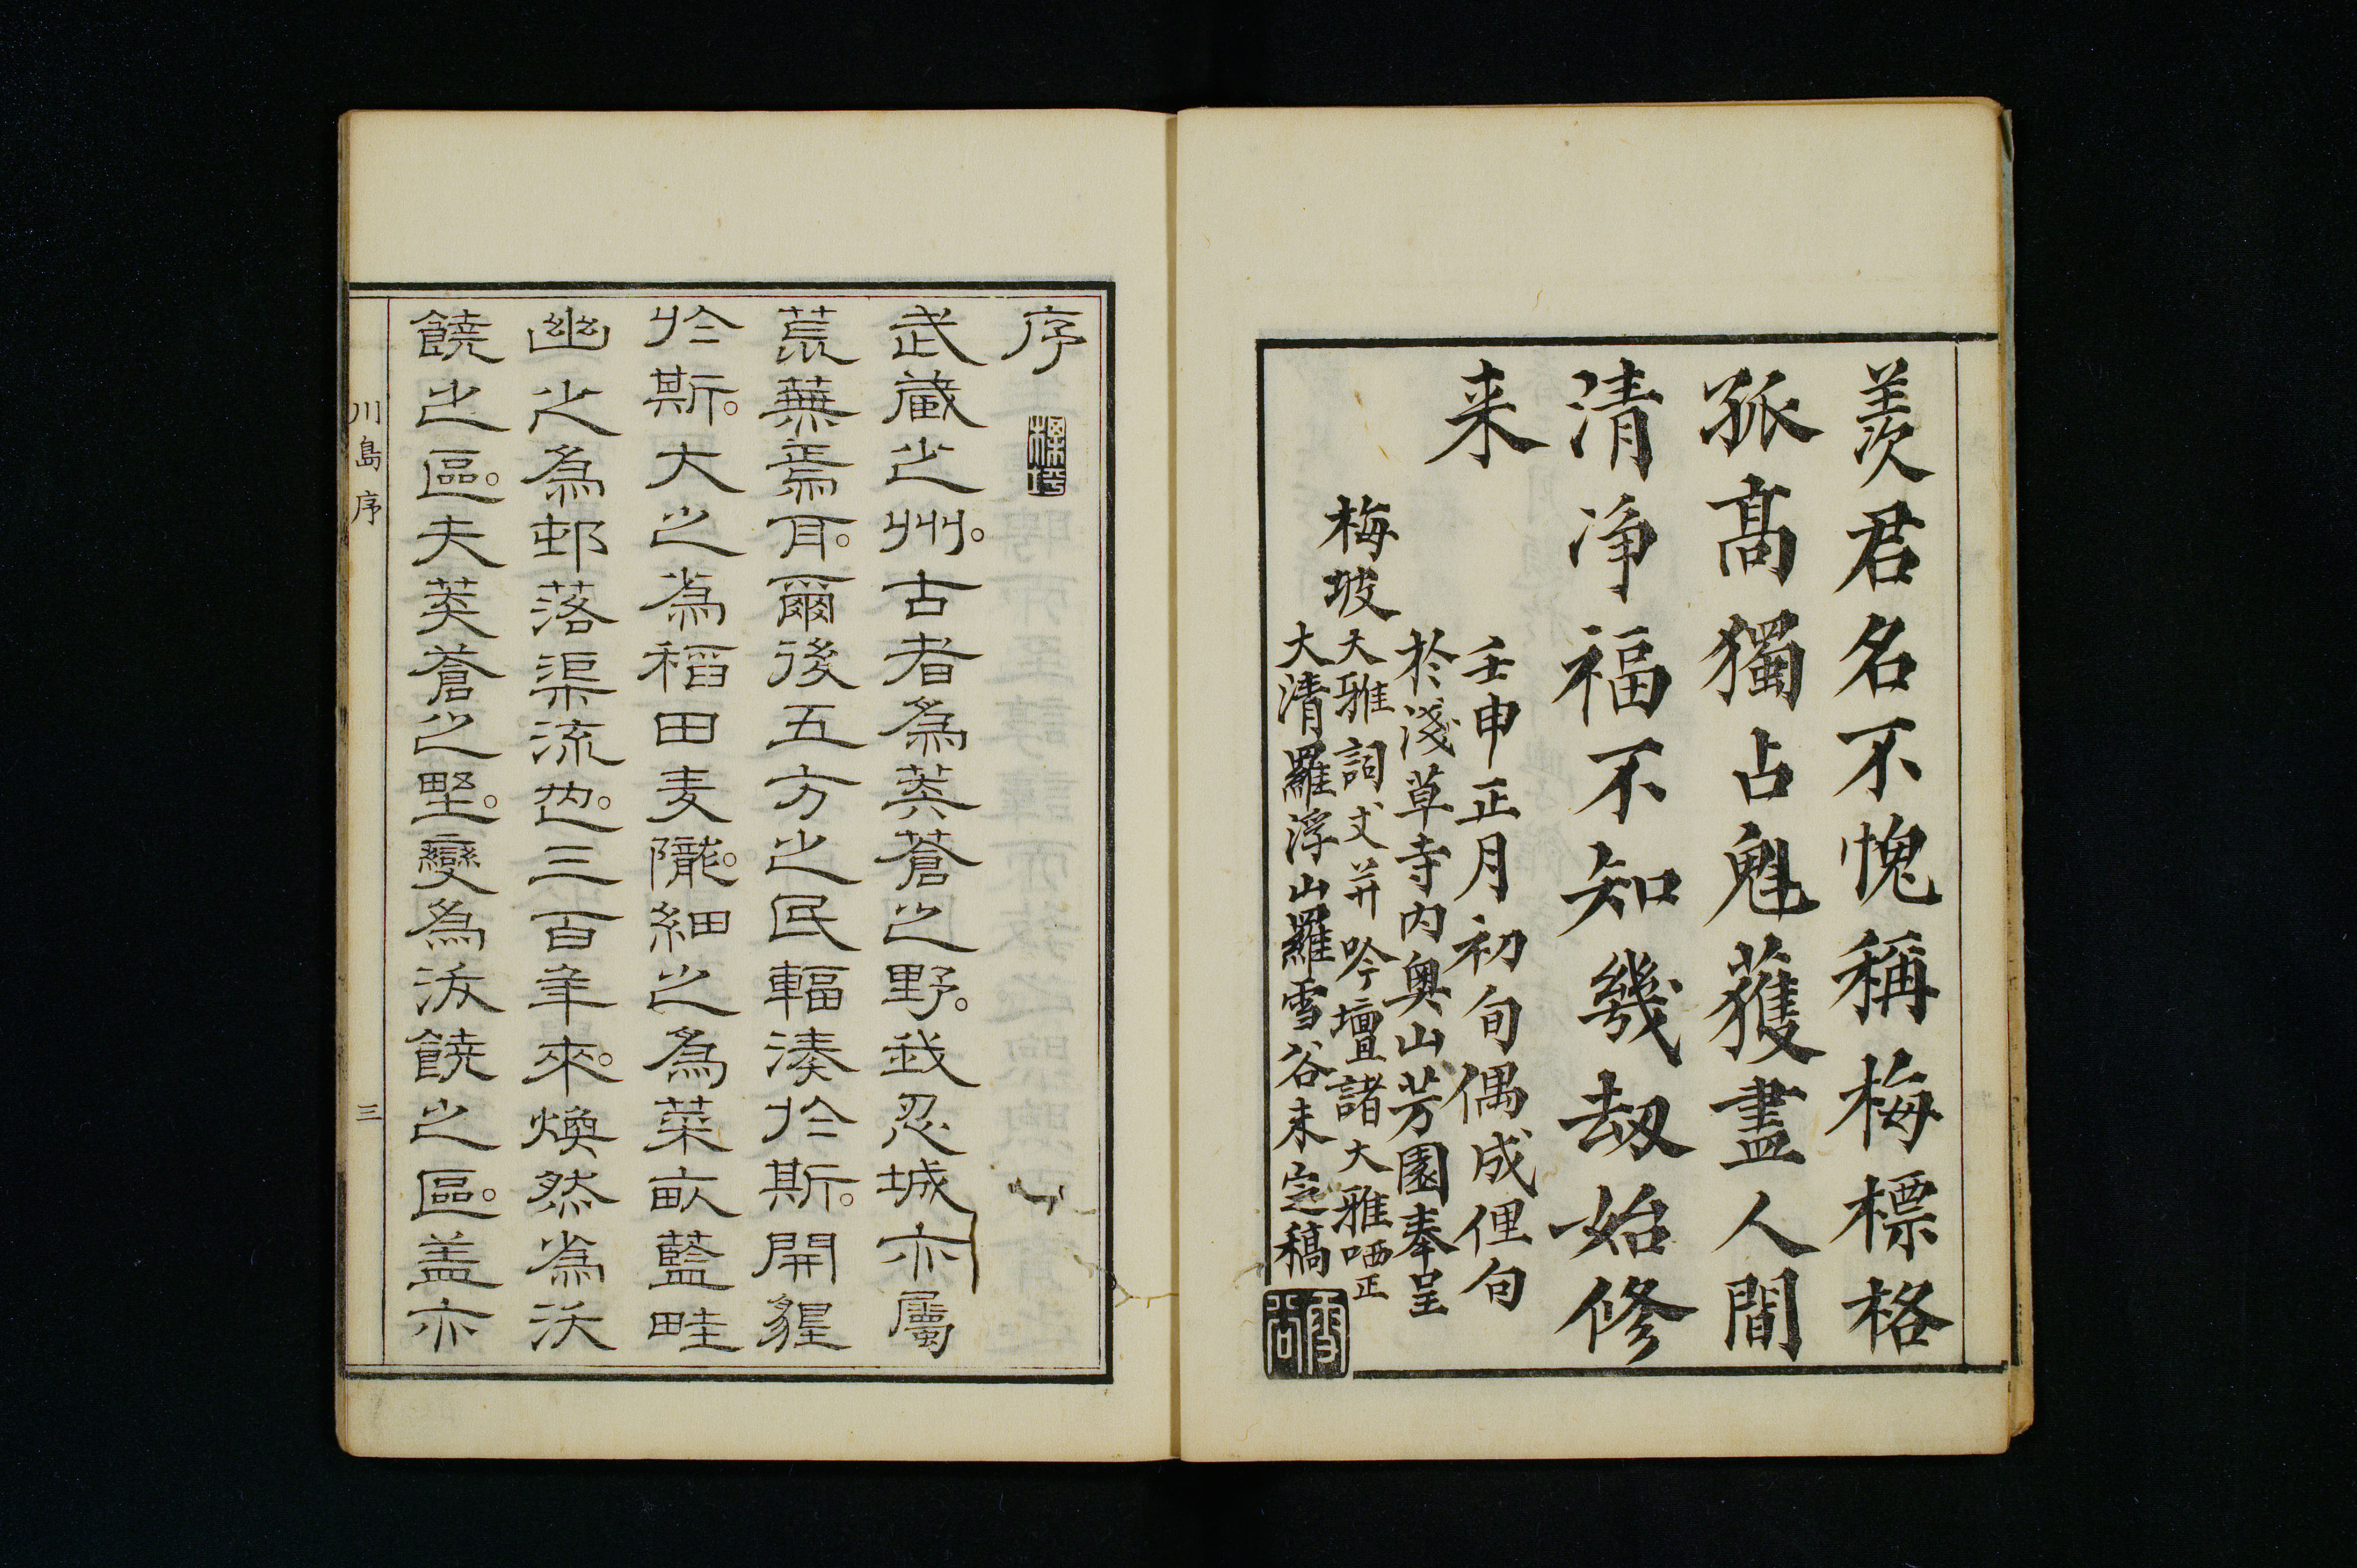 羨君名不愧稱梅標格
孤高獨占魁獲盡人間
清淨福不知幾劫始修
来
壬申正月初旬偶成俚句
於淺草寺内奥山芳園奉呈
梅坡大雅詞丈并吟壇諸大雅哂正
大清羅浮山羅雪谷未定稿
雪谷
序
武蔵之州。古者為莽蒼之野。我忍城亦屬
荒蕪焉耳。爾後五方之民輻湊於斯。開貇
於斯。大之為稻田麦隴。細之為菜畝藍畦
幽之為邨落渠流也。三百年來。煥然為沃
饒之區。夫莽蒼之野。變為沃饒之區。盖亦
川島序
三